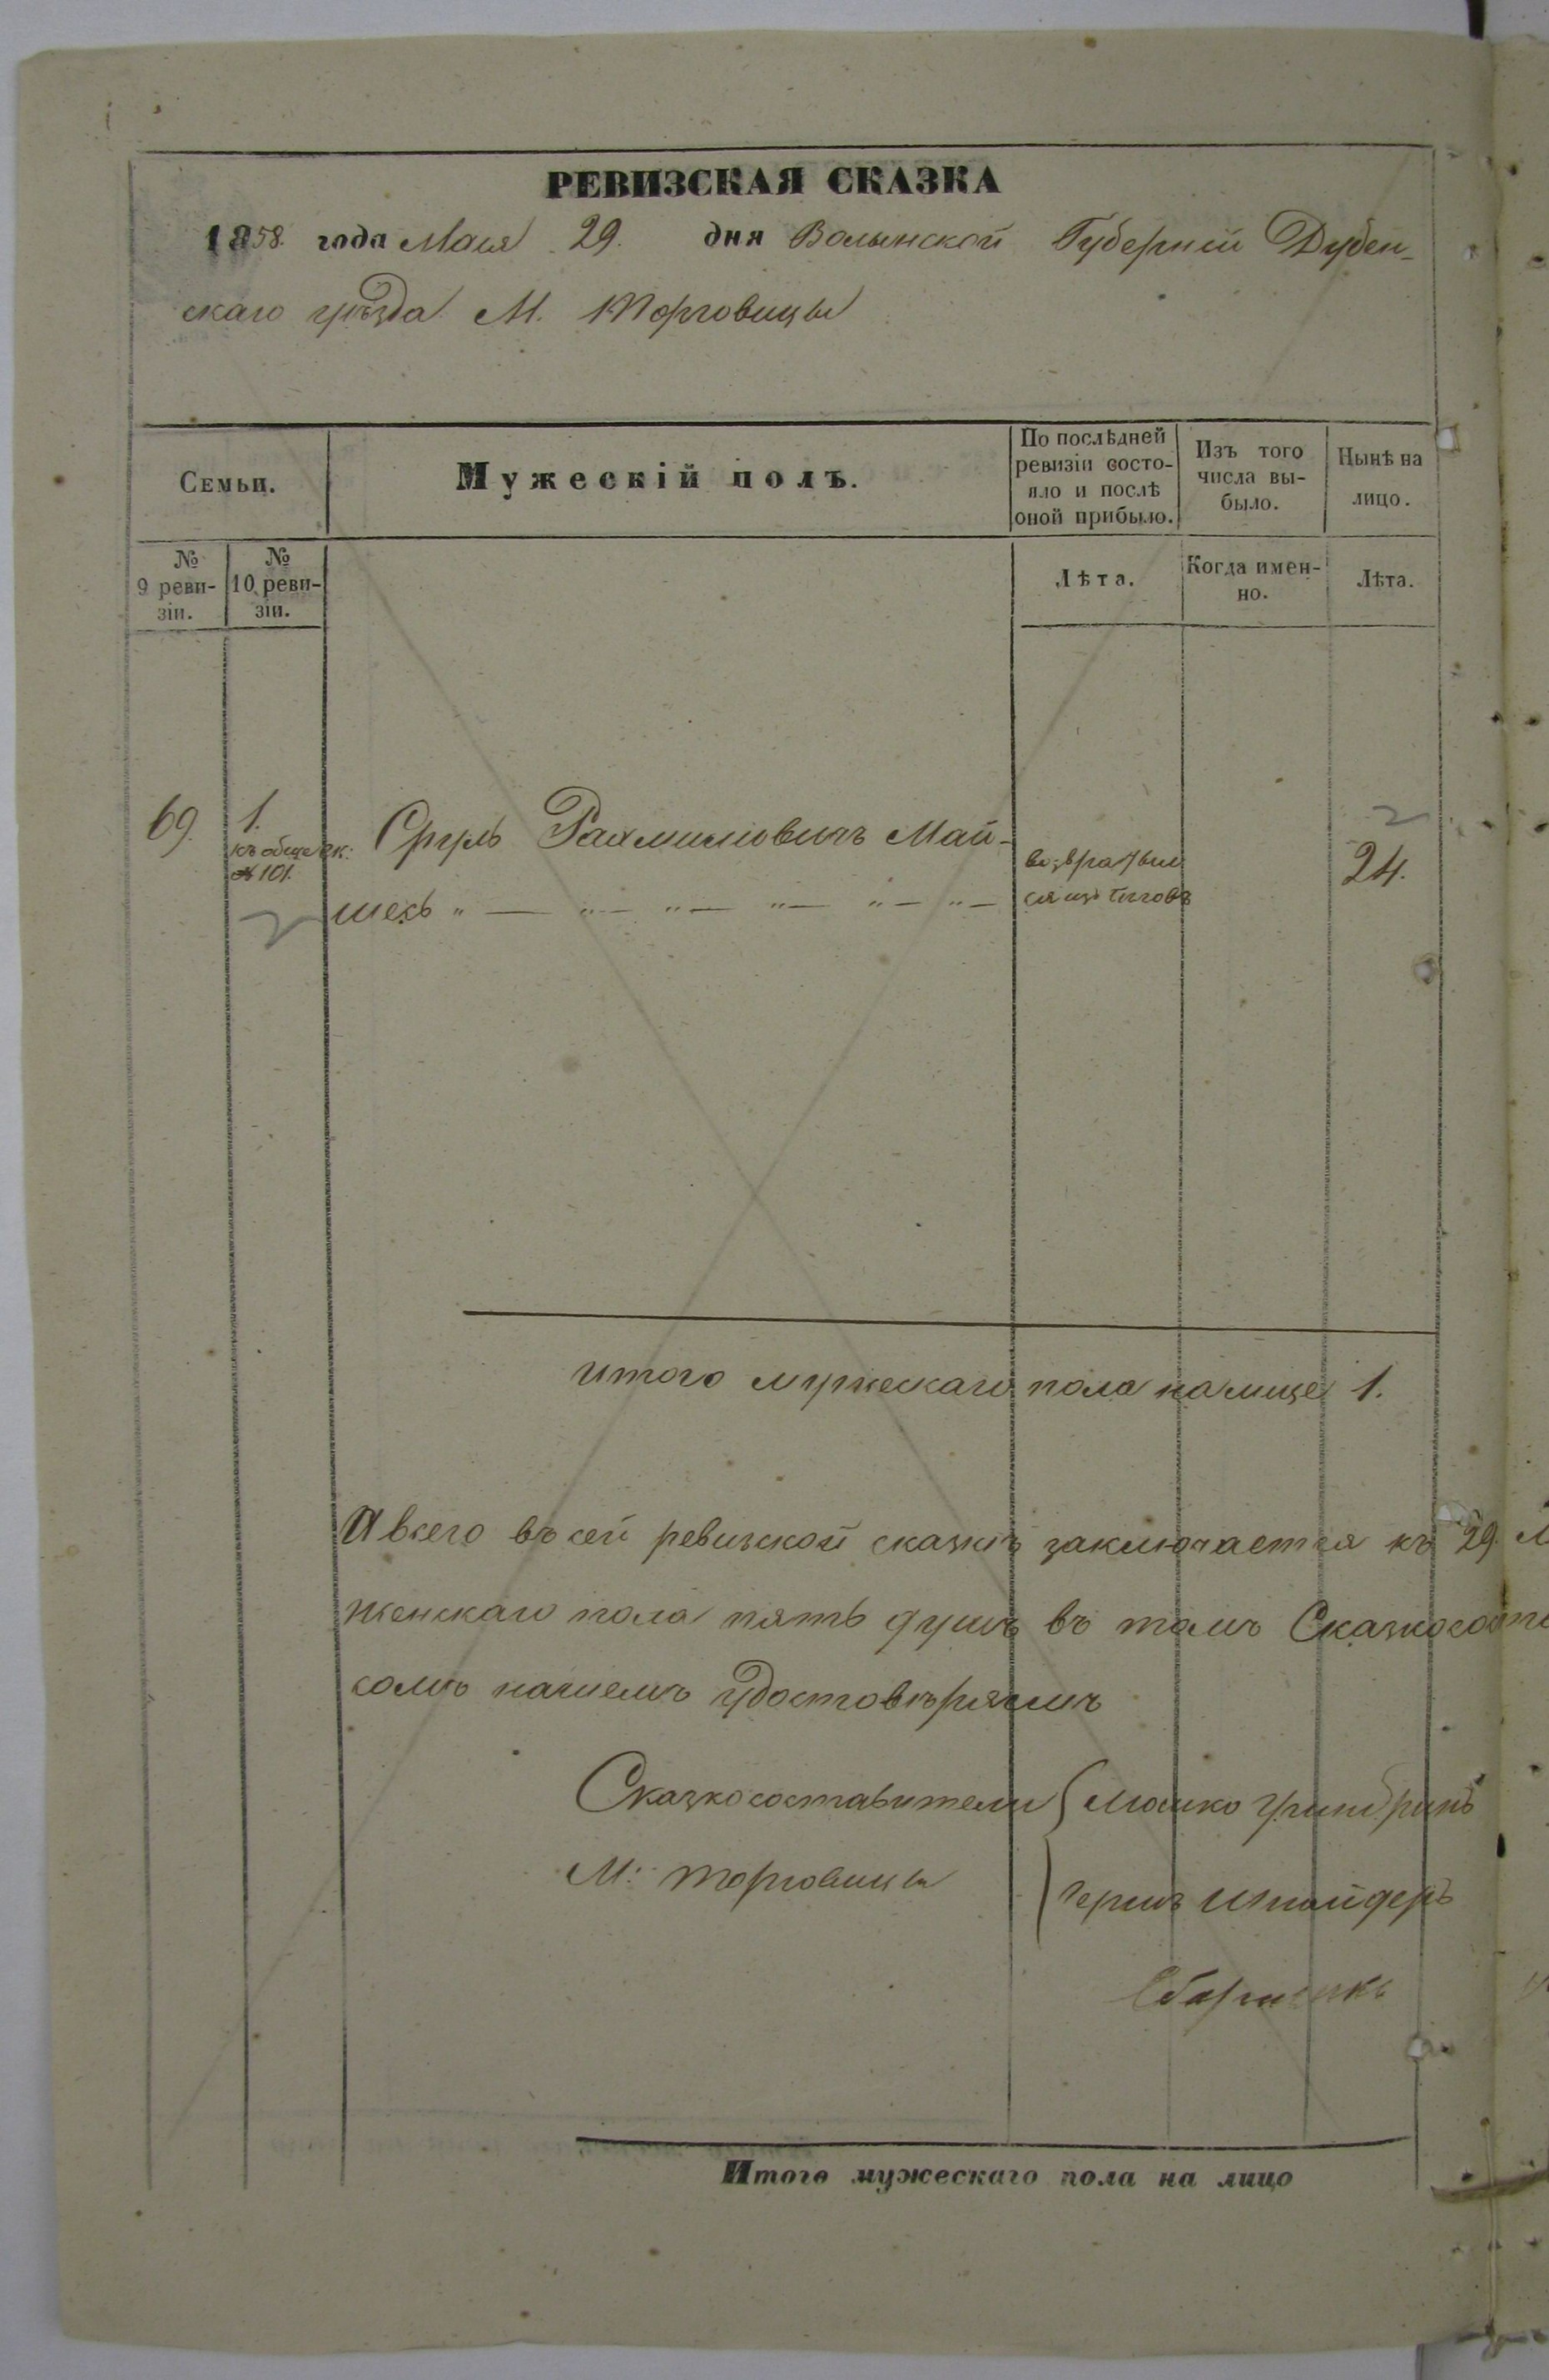 РЕВИЗСКАЯ СКАЗКА
1858. года Маія 29. дня Волынской Губерніи Дубен-
скаго уѣзда М. Торговицы
Семьи.
Мужескій полъ.
По послѣдней
ревизіи состо-
яло и послѣ
оной прибыло.
Изъ того
числа вы-
было.
Нынѣ на
лицо.
№
9 реви-
зіи.
№
10 реви-
зіи.
Лѣта.
Когда имен-
но.
Лѣта.
69.
1.
къ обще ск:
№ 101.
Сруль Рахмиловичъ Май-
шесъ " — " — " — " — " — " —
возвратил
ся изъ бѣговъ
24.
итого мужескаго пола на лице 1.
А всего въ сей ревизской сказкѣ заключается къ 29. М
женскаго пола пять душъ въ томъ Сказкососта
комъ нашемъ удостовѣряемъ
Сказкосоставители Мошко
М: Торговицы
Гершъ Шнайдеръ
Сборщикъ
Итого мужескаго пола на лицо